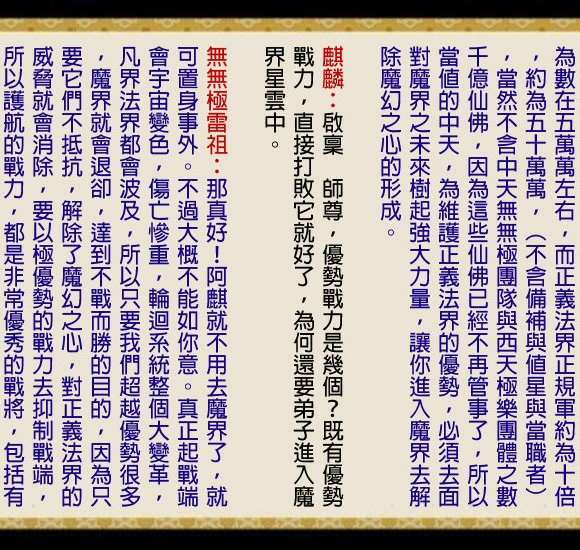 為數在五萬萬左右，而正義法界正規軍約為十倍
，約為五十萬萬，（不含備補與值星與當職者）
，當然不含中天無無極團隊與西天極樂團體之數
千億仙佛，因為這些仙佛已經不再管事了，所以
當值的中天，為維護正義法界的優勢，必須去面
對魔界之未來樹起強大力量，讓你進入魔界去解
除魔幻之心的形成。
麒麟：啟稟　師尊，優勢戰力是幾個？既有優勢
戰力，直接打敗它就好了，為何還要弟子進入魔
界星雲中。
無無極雷祖：那真好！阿麒就不用去魔界了，就
可置身事外。不過大概不能如你意。真正起戰端
會宇宙變色，傷亡慘重，輪迴系統整個大變革，
凡界法界都會波及，所以只要我們超越優勢很多
，魔界就會退卻，達到不戰而勝的目的，因為只
要它們不抵抗，解除了魔幻之心，對正義法界的
威脅就會消除，要以極優勢的戰力去抑制戰端，
所以護航的戰力，都是非常優秀的戰將，包括有